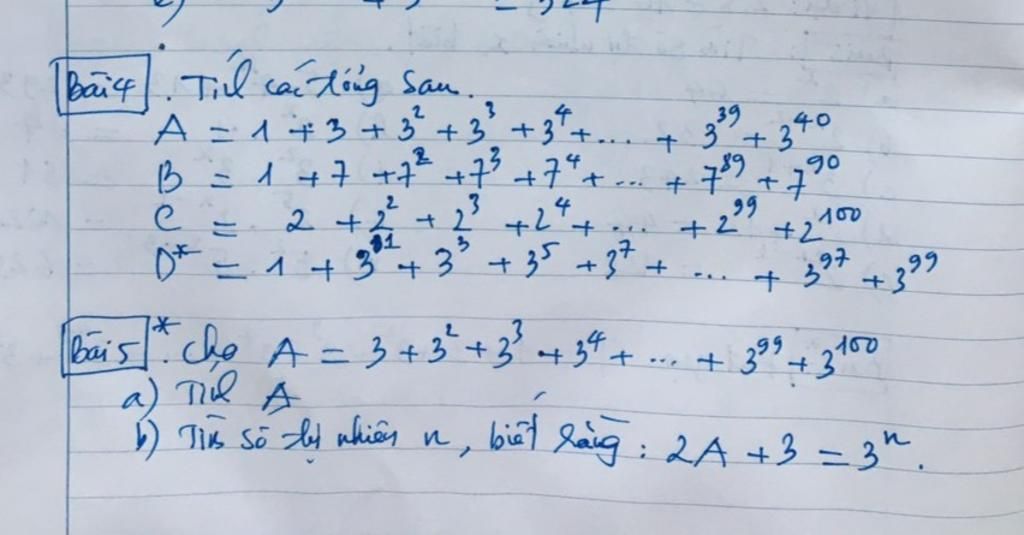 = 324
Bài 4. Tính các tổng sau.
A = 1 + 3 + 3² + 3³ + 3⁴ + ... + 3³⁹ + 3⁴⁰
B = 1 + 7 + 7² + 7³ + 7⁴ + ... + 7⁸⁹ + 7⁹⁰
C = 2 + 2² + 2³ + 2⁴ + ... + 2⁹⁹ + 2¹⁰⁰
D* = 1 + 3¹ + 3³ + 3⁵ + 3⁷ + ... + 3⁹⁷ + 3⁹⁹
Bài 5*. Cho A = 3 + 3² + 3³ + 3⁴ + ... + 3⁹⁹ + 3¹⁰⁰
a) Tính A
b) Tìm số tự nhiên n, biết rằng: 2A + 3 = 3ⁿ.